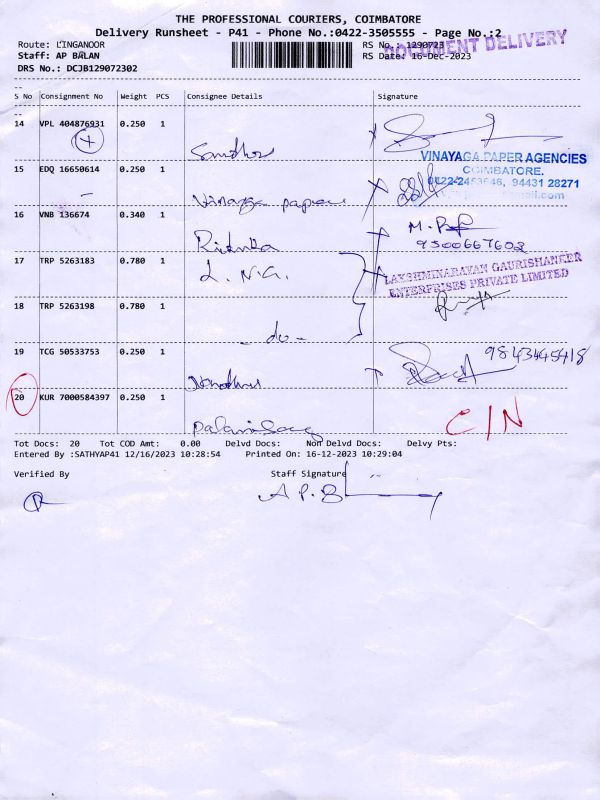 THE PROFESSIONAL COURIERS, COIMBATORE
Delivery Runsheet - P41 - Phone No.:0422-3505555 - Page No.:2
DOCUMENT DELIVERY
Route: LINGANOOR
RS No.: 1290723
Staff: AP BALAN
RS Date: 16-Dec-2023
DRS No.: DCJB129072302
S No Consignment No Weight PCS Consignee Details Signature
14 VPL 404876931 0.250 1
VINAYAGA PAPER AGENCIES
COIMBATORE.
15 EDQ 16650614 0.250 1
94431 28271
Vinayaga papers
16 VNB 136674 0.340 1
9500667602
17 TRP 5263183 0.780 1
L. N.G.
LAKSHMINARAYAN GAURISHANKER
ENTERPRISES PRIVATE LIMITED
18 TRP 5263198 0.780 1
- do -
19 TCG 50533753 0.250 1
9843445418
20 KUR 7000584397 0.250 1
C/N
Tot Docs: 20 Tot COD Amt: 0.00 Delvd Docs: Non Delvd Docs: Delvy Pts:
Entered By :SATHYAP41 12/16/2023 10:28:54 Printed On: 16-12-2023 10:29:04
Verified By Staff Signature
A P. B